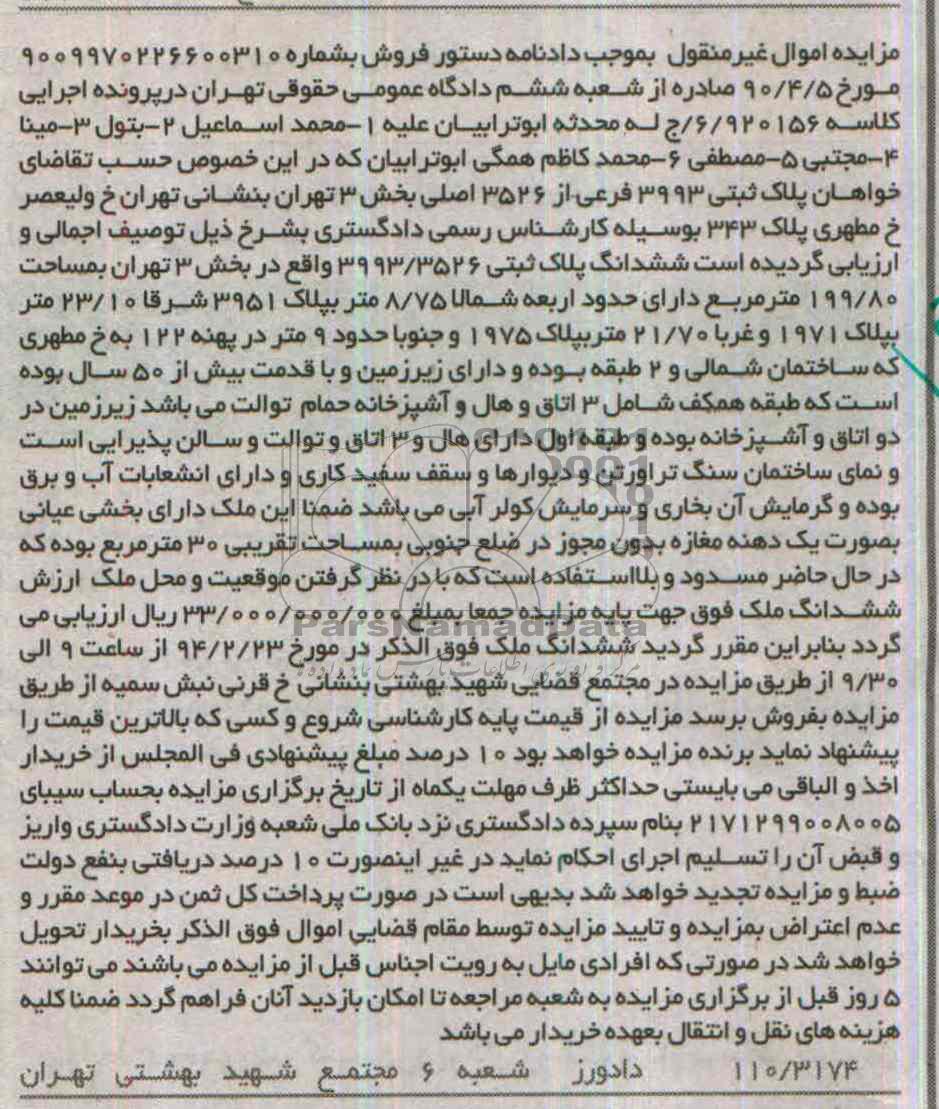 مزایده اموال غیرمنقول بموجب دادنامه دستور فروش بشماره ۹۰۰۹۹۷۰۲۲۶۶۰۰۳۱۰
مورخ ۹۰/۴/۵ صادره از شعبه ششم دادگاه عمومی حقوقی تهران درپرونده اجرایی
کلاسه ۶/۹۲۰۱۵۶/ج له محدثه ابوترابیان علیه ۱-محمد اسماعیل ۲-بتول ۳-مینا
۴-مجتبی ۵-مصطفی ۶-محمد کاظم همگی ابوترابیان که در این خصوص حسب تقاضای
خواهان پلاک ثبتی ۳۹۹۳ فرعی از ۳۵۲۶ اصلی بخش ۳ تهران بنشانی تهران خ ولیعصر
خ مطهری پلاک ۳۴۳ بوسیله کارشناس رسمی دادگستری بشرخ ذیل توصیف اجمالی و
ارزیابی گردیده است ششدانگ پلاک ثبتی ۳۹۹۳/۳۵۲۶ واقع در بخش ۳ تهران بمساحت
۱۹۹/۸۰ مترمربع دارای حدود اربعه شمالا ۸/۷۵ متر بپلاک ۳۹۵۱ شرقا ۲۳/۱۰ متر
بپلاک ۱۹۷۱ و غربا ۲۱/۷۰ متربپلاک ۱۹۷۵ و جنوبا حدود ۹ متر در پهنه ۱۲۲ به خ مطهری
که ساختمان شمالی و ۲ طبقه بوده و دارای زیرزمین و با قدمت بیش از ۵۰ سال بوده
است که طبقه همکف شامل ۳ اتاق و هال و آشپزخانه حمام توالت می باشد زیرزمین در
دو اتاق و آشپزخانه بوده و طبقه اول دارای هال و ۳ اتاق و توالت و سالن پذیرایی است
و نمای ساختمان سنگ تراورتن و دیوارها و سقف سفید کاری و دارای انشعابات آب و برق
بوده و گرمایش آن بخاری و سرمایش کولر آبی می باشد ضمنا این ملک دارای بخشی عیانی
بصورت یک دهنه مغازه بدون مجوز در ضلع جنوبی بمساحت تقریبی ۳۰ مترمربع بوده که
در حال حاضر مسدود و بلااستفاده است که با در نظر گرفتن موقعیت و محل ملک ارزش
ششدانگ ملک فوق جهت پایه مزایده جمعا بمبلغ ۳۳/۰۰۰/۰۰۰/۰۰۰ ریال ارزیابی می
ParsNamadData
گردد بنابراین مقرر گردید ششدانگ ملک فوق الذکر در مورخ ۹۴/۲/۲۳ از ساعت ۹ الی
۹/۳۰ از طریق مزایده در مجتمع قضایی شهید بهشتی بنشانی خ قرنی نبش سمیه از طریق
مزایده بفروش برسد مزایده از قیمت پایه کارشناسی شروع و کسی که بالاترین قیمت را
پیشنهاد نماید برنده مزایده خواهد بود ۱۰ درصد مبلغ پیشنهادی فی المجلس از خریدار
اخذ و الباقی می بایستی حداکثر ظرف مهلت یکماه از تاریخ برگزاری مزایده بحساب سیبای
۲۱۷۱۲۹۹۰۰۸۰۰۵ بنام سپرده دادگستری نزد بانک ملی شعبه وزارت دادگستری واریز
و قبض آن را تسلیم اجرای احکام نماید در غیر اینصورت ۱۰ درصد دریافتی بنفع دولت
ضبط و مزایده تجدید خواهد شد بدیهی است در صورت پرداخت کل ثمن در موعد مقرر و
عدم اعتراض بمزایده و تایید مزایده توسط مقام قضایی اموال فوق الذکر بخریدار تحویل
خواهد شد در صورتی که افرادی مایل به رویت اجناس قبل از مزایده می باشند می توانند
۵ روز قبل از برگزاری مزایده به شعبه مراجعه تا امکان بازدید آنان فراهم گردد ضمنا کلیه
هزینه های نقل و انتقال بعهده خریدار می باشد
۱۱۰/۳۱۷۴ دادورز شعبه ۶ مجتمع شهید بهشتی تهران